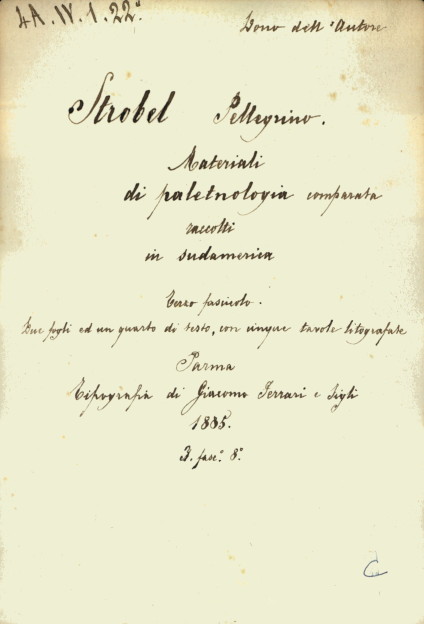 4A.IV.1.22ª
Dono dell'Autore
Strobel Pellegrino.
Materiali
di paletnologia comparata
raccolti
in sudamerica
Terzo fascicolo.
Due fogli ed un quarto di testo, con cinque tavole litografate
Parma
Tipografia di Giacomo Ferrari e figli
1885.
fascº. 8º.
C